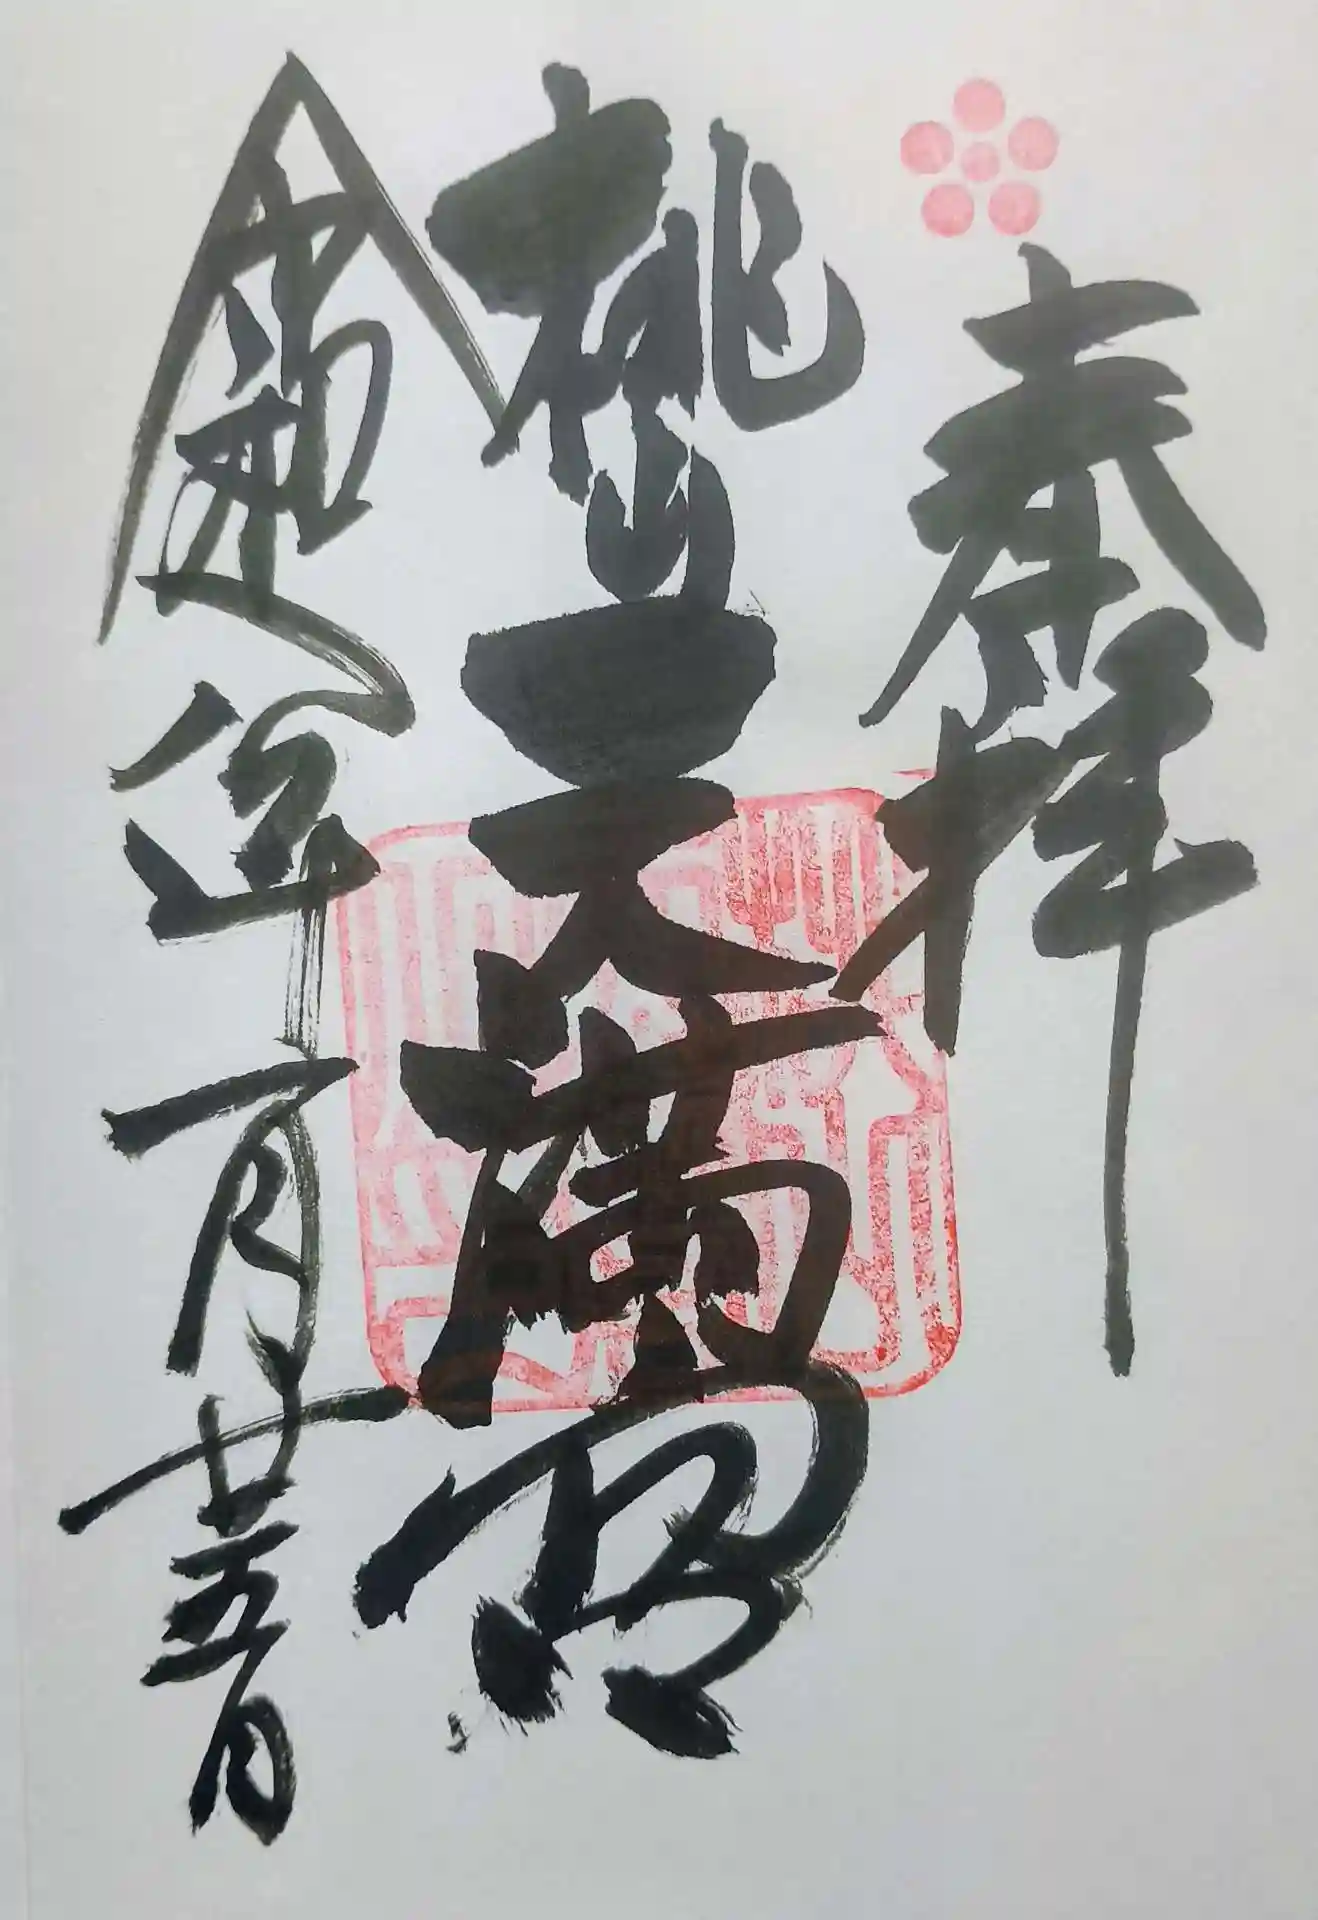 奉拝
桃山天満宮
年一月廿五日